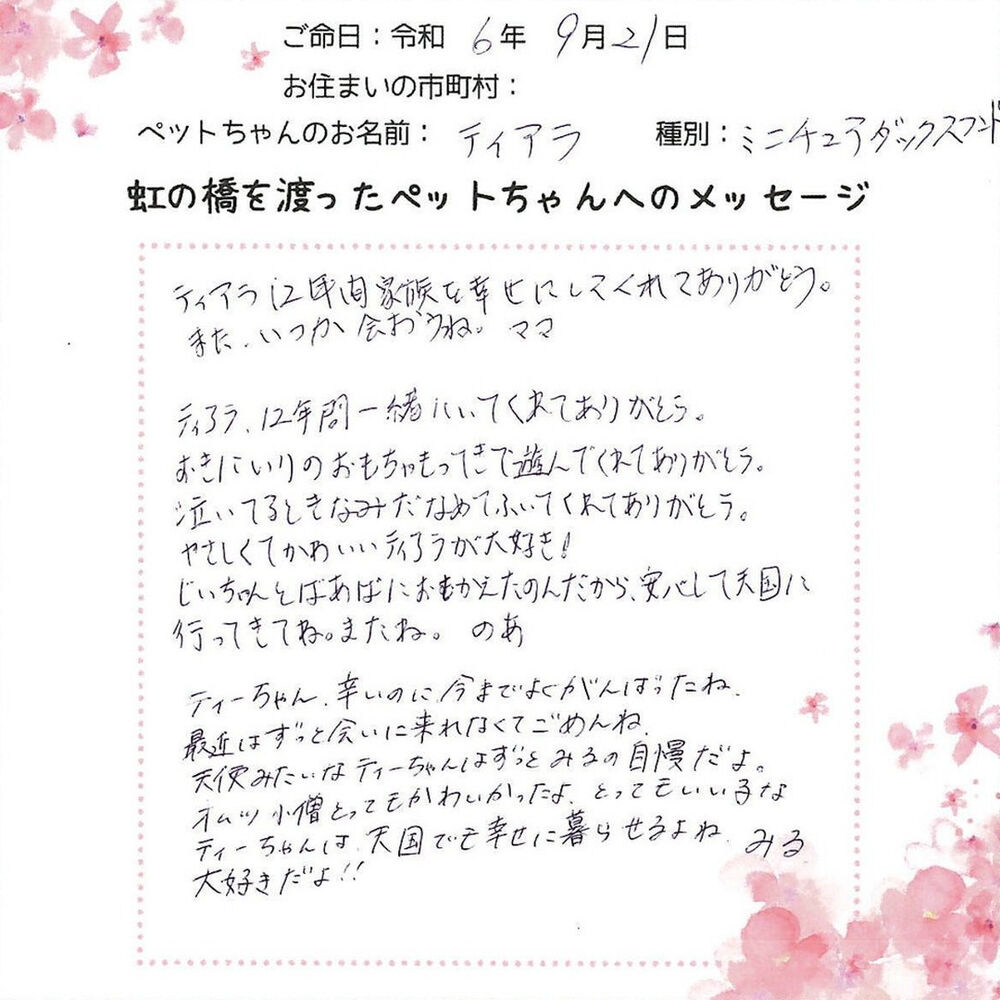 ご命日：令和 6年 9月21日
お住まいの市町村：
ペットちゃんのお名前： ティアラ 種別：ミニチュアダックスフンド
虹の橋を渡ったペットちゃんへのメッセージ
ティアラ12年間家族を幸せにしてくれてありがとう。
また、いつか会おうね。ママ
ティアラ、12年間一緒にいてくれてありがとう。
おきにいりのおもちゃもってきて遊んでくれてありがとう。
泣いてるときなみだなめてふいてくれてありがとう。
やさしくてかわいいティアラが大好き!
じいちゃんとばあばにおむかえたのんだから、安心して天国に
行ってきてね。またね。 のあ
ティーちゃん、辛いのに今までよくがんばったね、
最近はずっと会いに来れなくてごめんね、
天使みたいなティーちゃんはずっとみるの自慢だよ。
オムツ小僧とってもかわいかったよ、とってもいい子な
ティーちゃんは、天国でも幸せに暮らせるよね、みる
大好きだよ!!